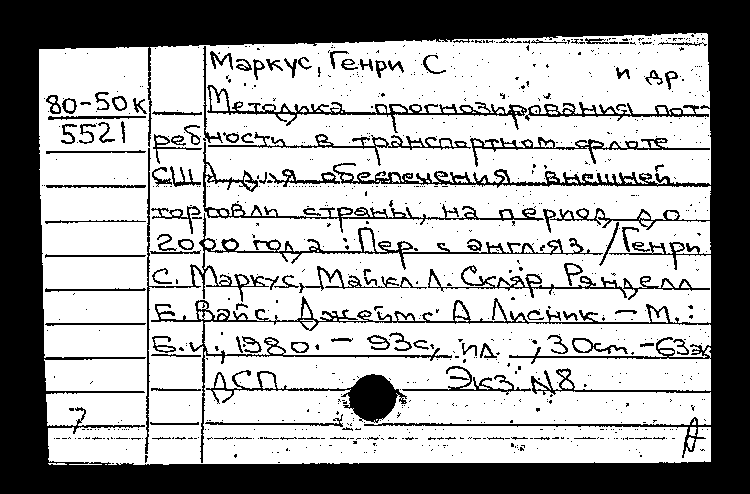 Маркус, Генри С
и др.
80-50к
5521
Методика прогнозирования пот-
ребности в транспортном флоте
США, для обеспечения внешней
торговли страны, на период до
2000 года : Пер. с англ.яз. / Генри
С. Маркус, Майкл Л. Скляр, Рэнделл
Б. Вайс, Джеймс А. Лисник. - М.:
Б.и., 1980. - 93с, ил. ; 30см. - 63эк
ДСП. Экз. N8.
7
А